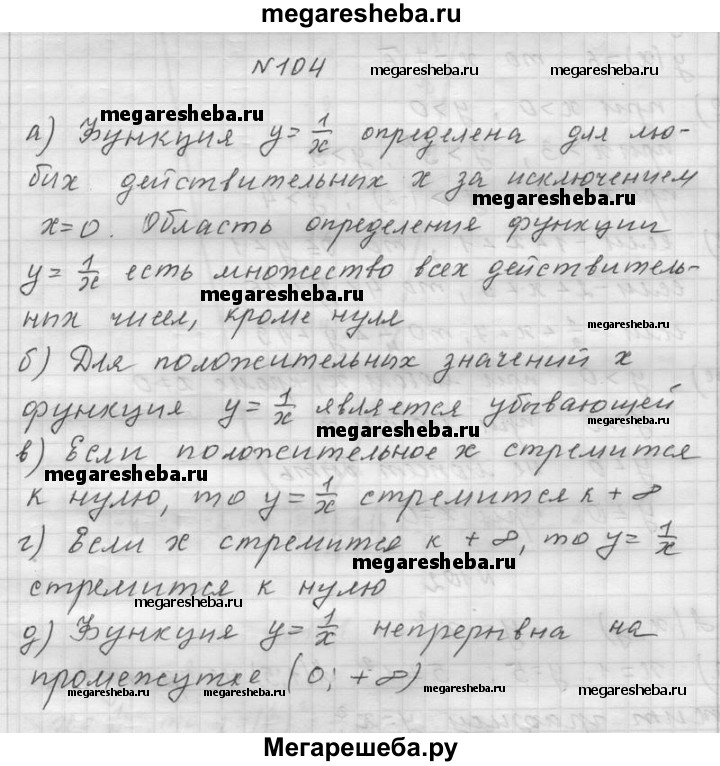 megaresheba.ru
№104
megaresheba.ru
megaresheba.ru
а) Функция y = 1/x определена для лю-
бых действительных x за исключением
megaresheba.ru
x=0. Область определения функции
y = 1/x есть множество всех действитель-
megaresheba.ru
ных чисел, кроме нуля
megaresheba.ru
б) Для положительных значений x
функция y = 1/x является убывающей
megaresheba.ru
в) Если положительное x стремится
megaresheba.ru
к нулю, то y = 1/x стремится к + ∞
г) Если x стремится к + ∞, то y = 1/x
megaresheba.ru
стремится к нулю
megaresheba.ru
megaresheba.ru
д) Функция y = 1/x непрерывна на
промежутке (0; + ∞)
megaresheba.ru
megaresheba.ru
megaresheba.ru
megaresheba.ru
Мегарешеба.ру